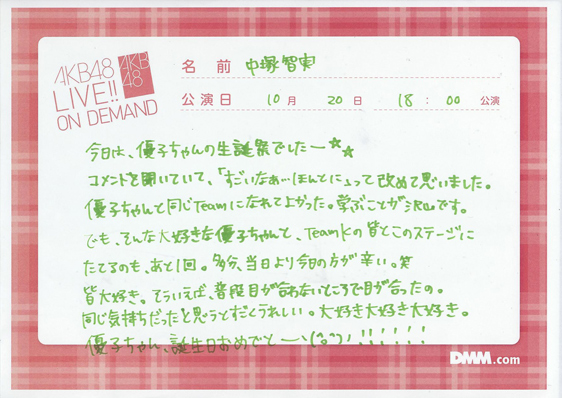 AKB48
LIVE!!
ON DEMAND
AKB
48
名 前 中塚智実
公演日 10月 20日 18:00 公演
今日は、優子ちゃんの生誕祭でしたー☆☆
コメントを聞いていて、「すごいなぁ…ほんとに」って改めて思いました。
優子ちゃんと同じTeamになれて上かった。学ぶことが沢山です。
でも、そんな大好きな優子ちゃんと、TeamKの皆とこのステージに
たてるのも、あと1回。多分、当日より今日の方が辛い。笑
皆大好き。そういえば、普段目が合わないところで目が合ったの。
同じ気持ちだったと思うとすごくうれしい。大好き大好き大好き。
優子ちゃん、誕生日おめでとー!!!!!!
DMM.com